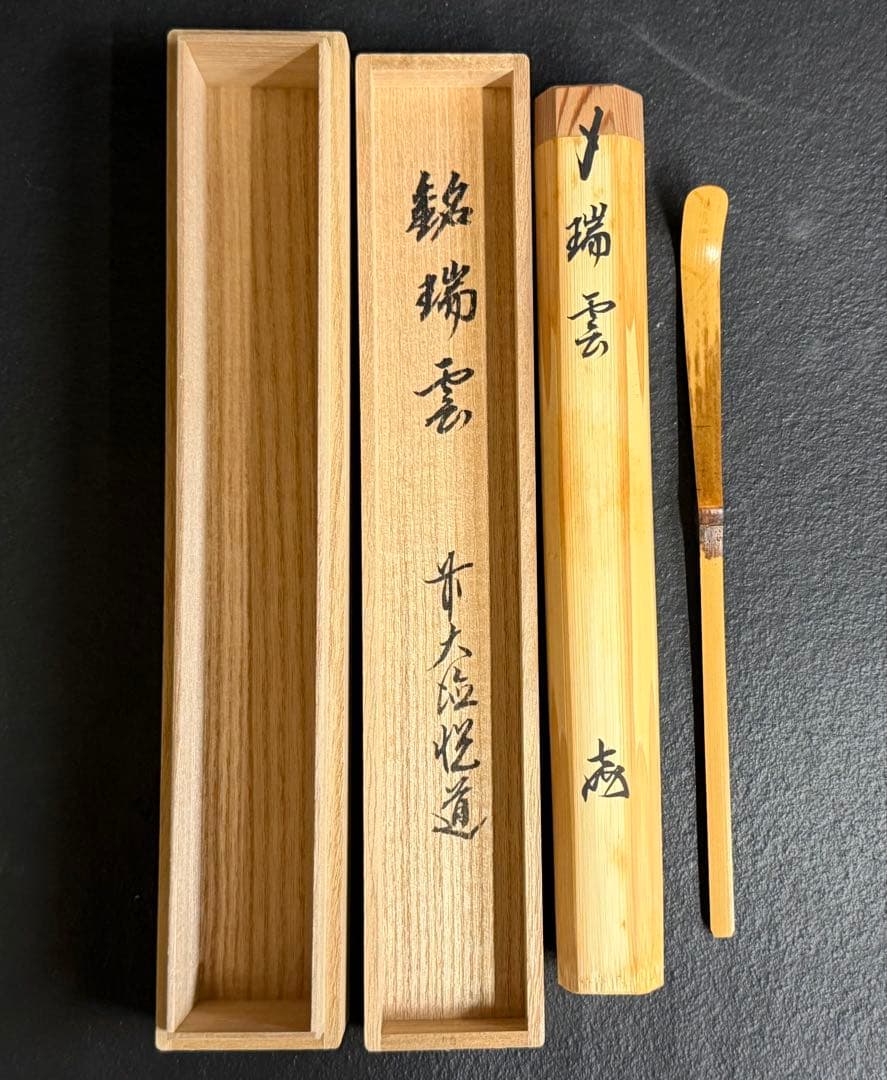 銘 瑞雲
前大徳悦道
瑞雲